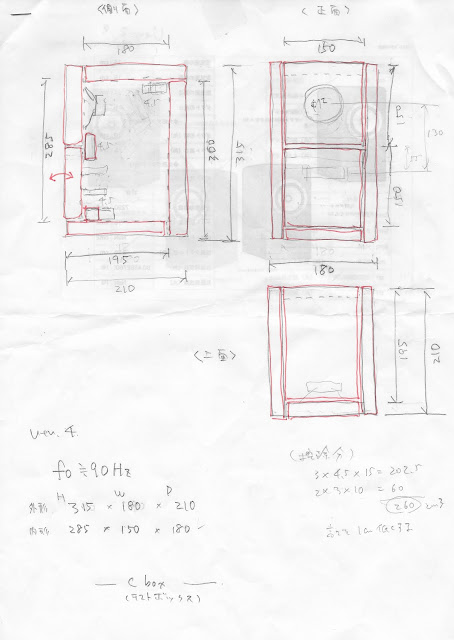 〈側面〉
〈正面〉
180
150
4.5
285
4.5
4.5
300
315
195
210
412
150
130
55
180
〈上面〉
195
210
ver. 4.
f0≒90Hz
H W D
外形 315 × 180 × 210
内形 285 × 150 × 180
C box
(テストボックス)
(控除分)
3 × 4.5 × 15 = 202.5
2 × 3 × 10 = 60
260 cm3